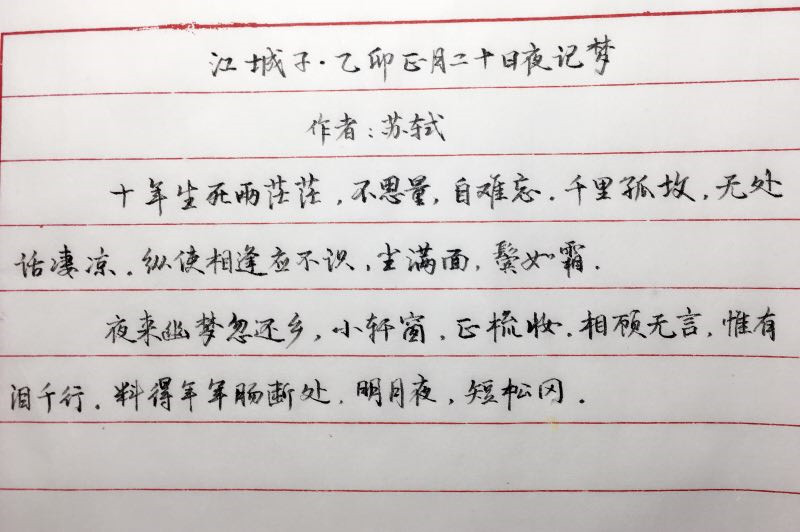 江城子·乙卯正月二十日夜记梦
作者：苏轼
十年生死两茫茫，不思量，自难忘。千里孤坟，无处
话凄凉。纵使相逢应不识，尘满面，鬓如霜。
夜来幽梦忽还乡，小轩窗，正梳妆。相顾无言，惟有
泪千行。料得年年肠断处，明月夜，短松冈。